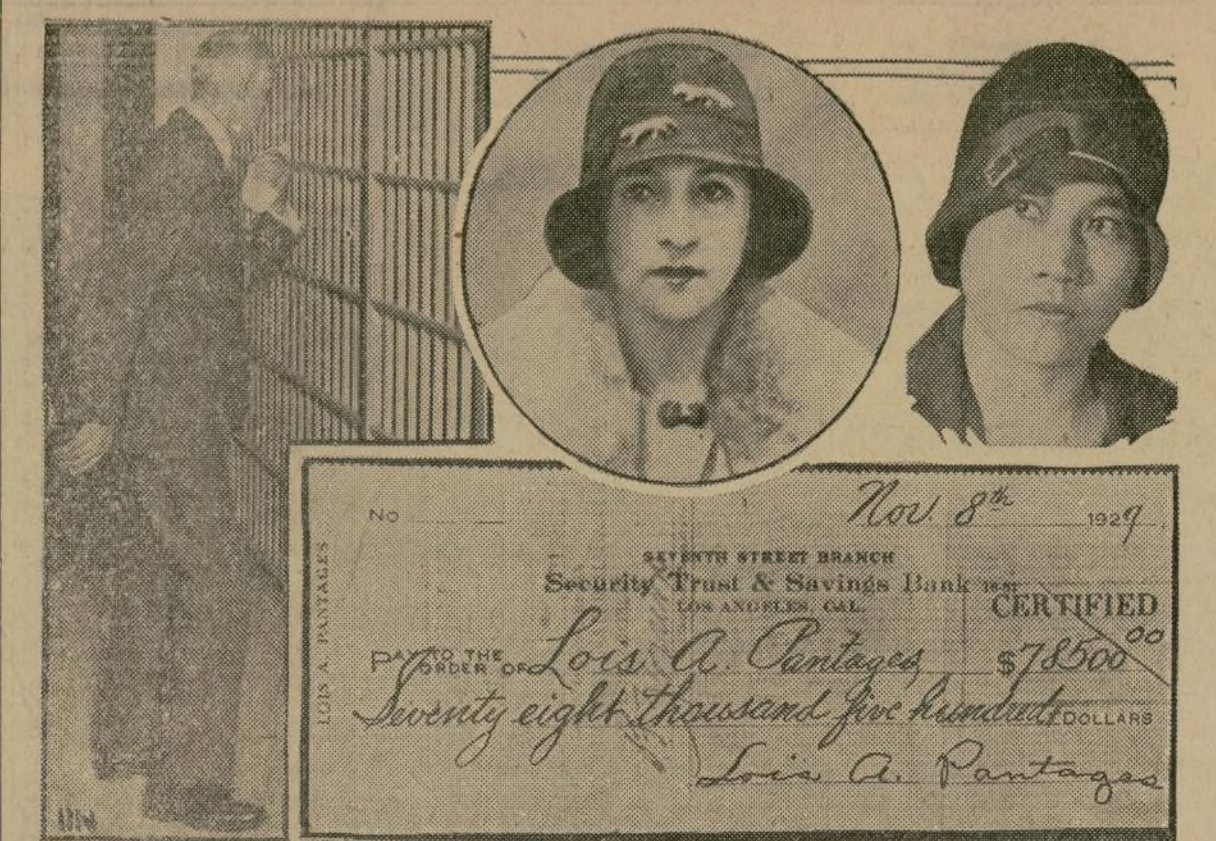 Nov. 8th 1929
No
LOIS A. PANTAGES
SEVENTH STREET BRANCH
Security Trust & Savings Bank
LOS ANGELES, CAL.
CERTIFIED
PAY TO THE ORDER OF Lois A. Pantages $78500 00
Seventy eight thousand five hundred DOLLARS
Lois A. Pantages